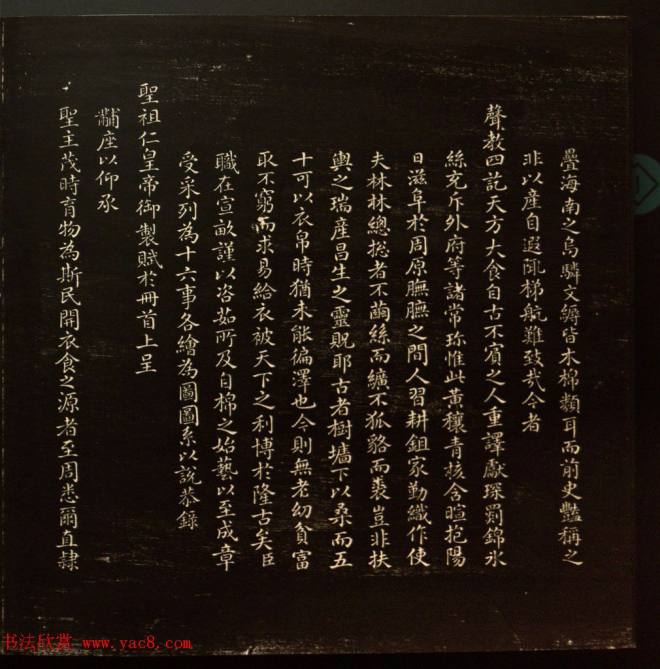 疊海南之烏驎文縟皆木棉類耳而前史豔稱之
非以產自遐陬梯航難致哉今者
聲教四訖天方大食自古不賓之人重譯獻琛罽錦氷
絲充斥外府等諸常珍惟此黃穰青核含暄抱陽
日滋阜於周原膴膴之間人習耕鉏家勤織作使
夫林林總總者不繭絲而纊不狐貉而裘豈非扶
輿之瑞產昌生之靈貺耶古者樹墻下以桑而五
十可以衣帛時猶未能徧澤也今則無老幼貧富
取不窮而求易給衣被天下之利博於隆古矣臣
職在宣畝謹以咨茹所及自棉之始藝以至成章
受采列為十六事各繪為圖圖系以說恭錄
聖祖仁皇帝御製賦於冊首上呈
黼座以仰承
聖主茂時育物為斯民開衣食之源者至周悉爾直隸
书法欣赏 www.yac8.com